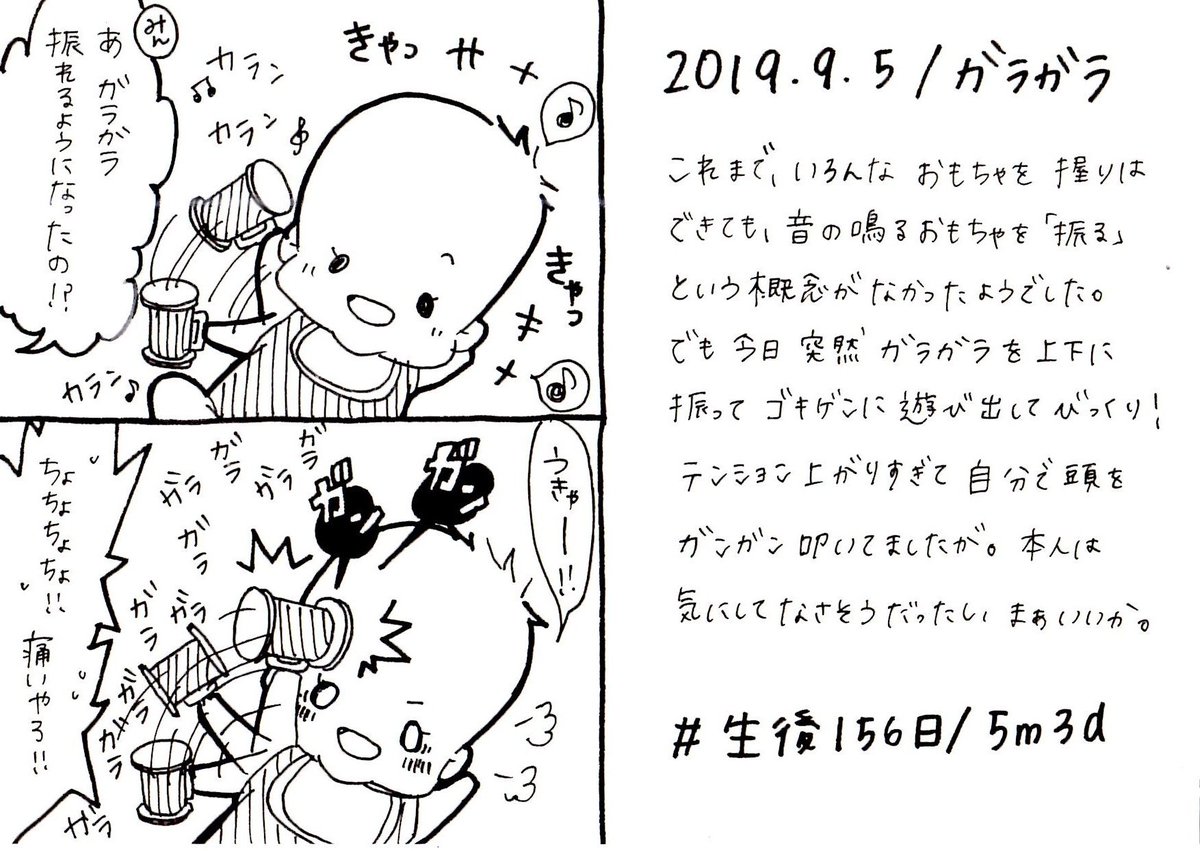 2019.9.5/ガラガラ
これまで、いろんな おもちゃを 握りは
できても、音の鳴るおもちゃを「振る」
という概念がなかったようでした。
でも 今日 突然 ガラガラを上下に
振って ゴキゲンに 遊び出してびっくり！
テンション上がりすぎて 自分で頭を
ガンガン 叩いてましたが。本人は
気にしてなさそうだったしい まぁいいか。
#生後156日/5m3d
きゃっ
キャ
カラン
カラン
みん
あ ガラガラ
振れるようになったの!?
きゃっ
キャ
カラン
うきゃー!!
ガン
ガン
ガラ
ガラ
ガラ
ガラ
ガラ
ガラ
ガラ
ガラ
ガラ
ちょちょちょちょ!!
痛いやろ!!
ガラ